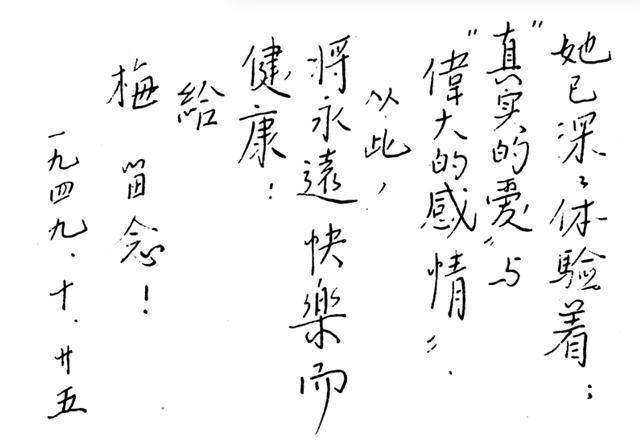 她已深々体驗着；
"真实的愛"与
"偉大的感情"．
以此，
將永遠快樂而
健康！
給
梅 留念！
一九四九．十．廿五